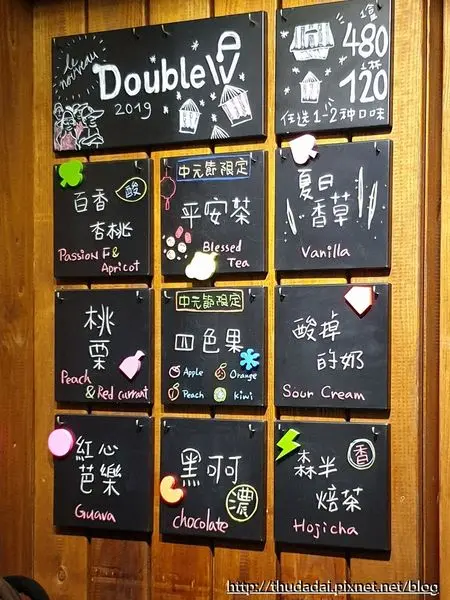 le nouveau
Double V
2019
1盒 480
1杯 120
任选1-2种口味
百香
杏桃
酸
Passion F &
Apricot
中元節限定
平安茶
Blessed
Tea
夏日
香草
Vanilla
桃
栗
Peach
& Red currant
中元節限定
四色果
Apple
Orange
Peach
kiwi
酸掉
的奶
Sour Cream
紅心
芭樂
Guava
黑可
濃
chocolate
森半
焙茶
香
Hojicha
http://thudadai.pixnet.net/blog